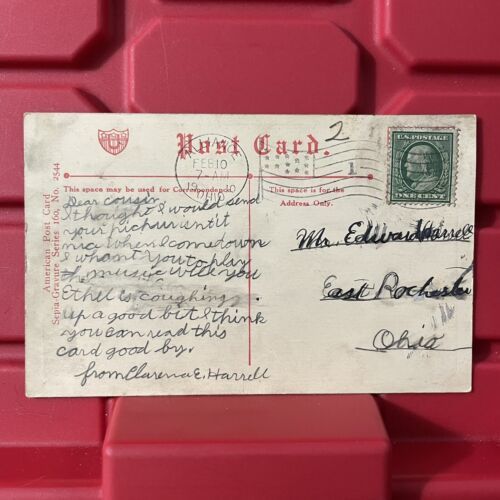 Post Card.
2
FEB 10
7 AM
OHIO
1
U.S. POSTAGE
ONE CENT
This space may be used for Correspondence
This space is for the
Address Only.
American Post Card
Sepia-Gravure Series 160, No. 2544
Dear cousin
I thought I would send
your picture
when I come down
I whant you to play
music will you
Ethel is coughing
up a good bit I think
you can read this
card good by.
from Clarence E. Harrell
Mr. Edward Harrell
East Rochester
Ohio